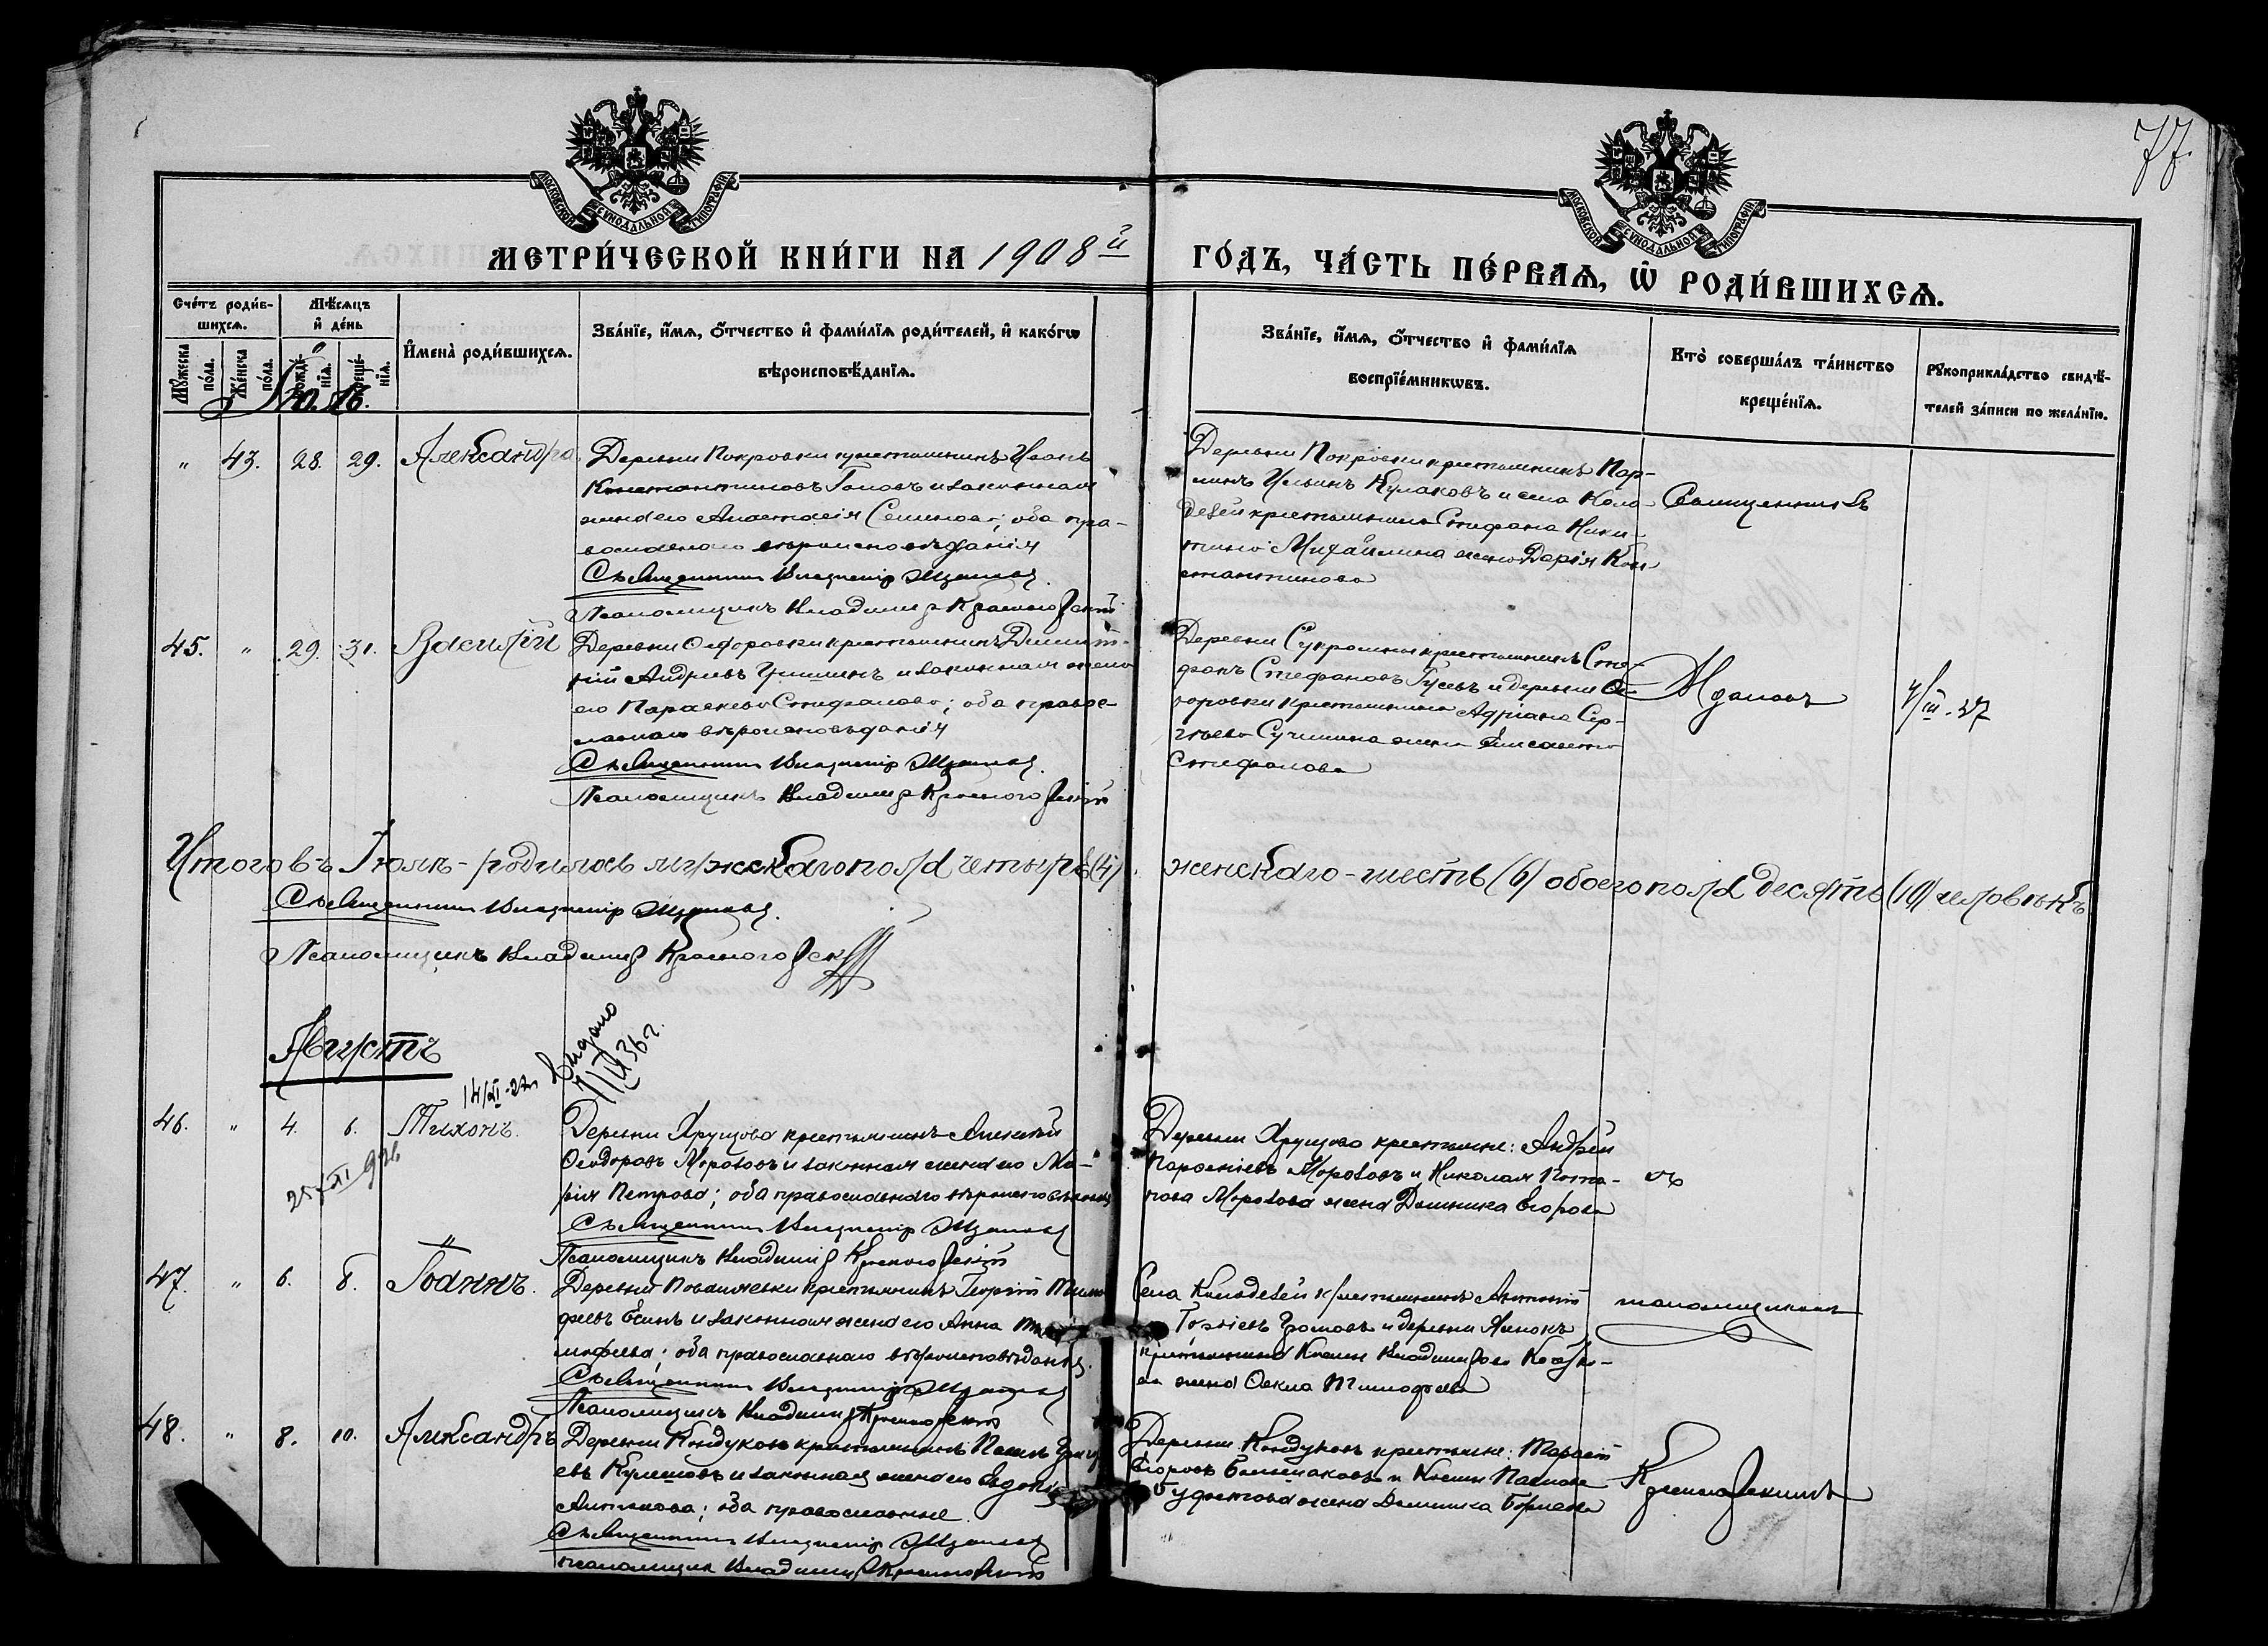 77.
МОСКОВСКОЙ СѴНОДАЛЬНОЙ ТИПОГРАФІИ
МОСКОВСКОЙ СѴНОДАЛЬНОЙ ТИПОГРАФІИ
МЕТРИ́ЧЕСКОЙ КНИ́ГИ НА 1908й
ГО́ДЪ, ЧА́СТЬ ПЕ́РВАѦ, Ѡ РОДИ́ВШИХСѦ.
Сче́тъ роди́в-
шихсѧ.
Мѣ́сѧцъ
и҆ де́нь
Мꙋ́жеска по́ла.
Же́нска по́ла.
рожде́-
нїѧ.
креще́-
нїѧ.
И҆мена̀ роди́вшихсѧ.
Зва́нїе, и҆́мѧ, ѻ҆́тчество и҆ фами́лїѧ роди́телей, и҆ како́гѡ
вѣроисповѣ́данїѧ.
Зва́нїе, и҆́мѧ, ѻ҆́тчество и҆ фами́лїѧ
воспрїе́мникѡвъ.
Кто̀ соверша́лъ та́инство
креще́нїѧ.
Рꙋкоприкла́дство свидѣ́-
телей за́писи по жела́нїю.
Іюль.
" 43. 28. 29. Александра
Деревни Покровки крестьянинъ Иванъ
Константиновъ и законная
жена его Анастасія Семенова; оба пра-
вославнаго вѣроисповѣданія
Священникъ Владиміръ Ждановъ.
Псаломщикъ Владиміръ Красногорскій
Деревни Покровки крестьянинъ Пар-
Ильинъ Кулаковъ и села Коло-
дезей крестьянина Стефана Ники-
тина Михайлина жена Дарія Кон-
стантинова
Священникъ
45. " 29. 31. Василій
Деревни Ѳедоровки крестьянинъ Димит-
рій Андреевъ и законная жена
его Параскева Стефанова; оба правос-
лавнаго вѣроисповѣданія
Священникъ Владиміръ Ждановъ.
Псаломщикъ Владиміръ Красногорскій
Деревни Сукромны крестьянинъ Сте-
фанъ Стефановъ Гусевъ и деревни Ѳе-
доровки крестьянина Адріана Сер-
гѣева жена Елисавета
Стефанова
Ждановъ
4/III-27
Итого въ Іюлѣ - родилось мужскаго пола четыре (4),
женскаго - шесть (6) обоего пола десять (10) человѣкъ
Священникъ Владиміръ Ждановъ.
Псаломщикъ Владиміръ Красногорскій
Августъ
14/XI-27г
Выдано
7/IX 36 г.
46. " 4. 6. Тихонъ.
25/XI 926
Деревни Хрущово крестьянинъ Алексѣй
Ѳеодоровъ Морозовъ и законная жена его Ма-
рія Петрова; оба православнаго вѣроисповѣданія
Священникъ Владиміръ Ждановъ
Псаломщикъ Владиміръ Красногорскій
Деревни Хрущово крестьяне: Андрей
Парѳеніевъ Морозовъ и Николая Пота-
пова Морозова жена Домника Егорова
съ
47. " 6. 8. Іоаннъ.
Деревни крестьянинъ Георгій Тимо-
феевъ Есинъ и законная жена его Анна
оба православнаго вѣроисповѣданія.
Священникъ Владиміръ Ждановъ
Псаломщикъ Владиміръ Красногорскій
Села Колодезей крестьянинъ Антоній
Громовъ и деревни
крестьянина Владимірова
жена Ѳекла Тимоѳеева
псаломщикомъ
48. " 8. 10. Александръ
Деревни Кондуковъ крестьянинъ Павелъ
Кулешовъ и законная жена его Евдокія
Антонова; оба православные.
Священникъ Владиміръ Ждановъ
псаломщикъ Владиміръ Красногорскій
Деревни Кондуковъ крестьяне: Тарасій
Егоровъ и Козмы Павлова
жена Домника
Красногорскимъ